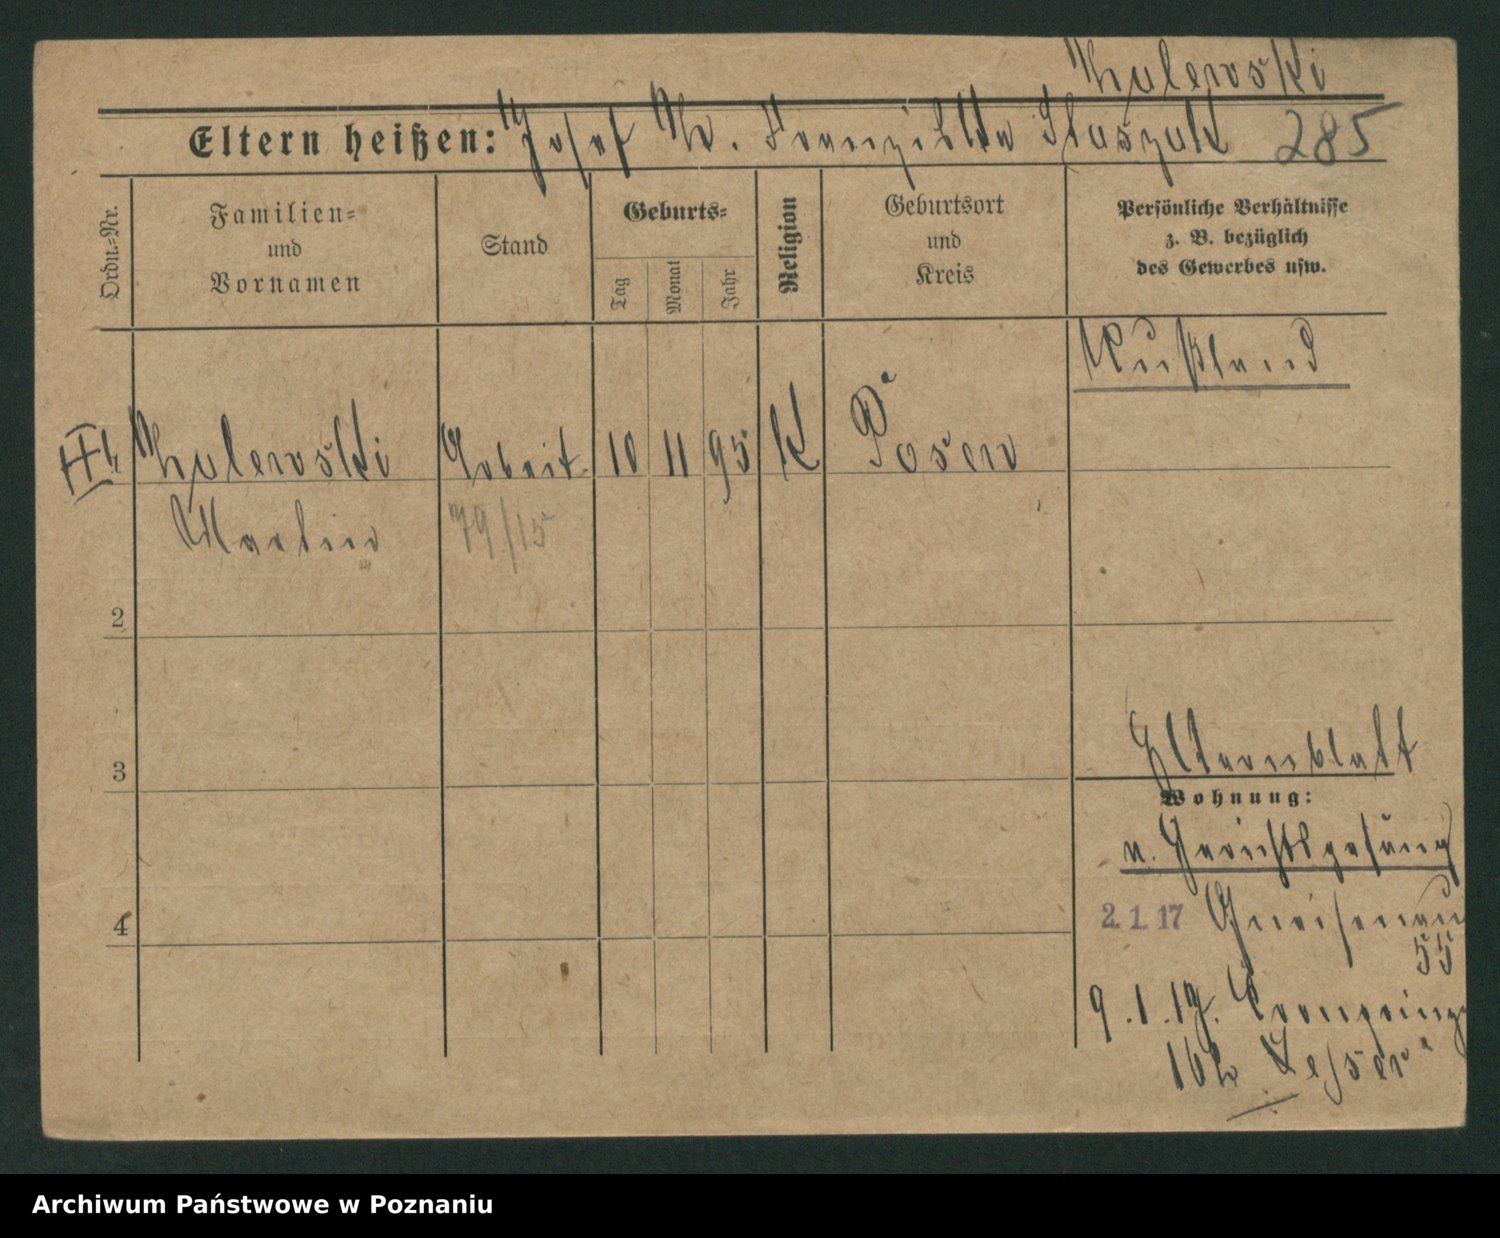 Kulewski
Eltern heißen: Josef K. Franziska Staszak 285
Ordn.-Nr.
Familien-
und
Vornamen
Stand
Geburts-
Tag
Monat
Jahr
Religion
Geburtsort
und
Kreis
Persönliche Verhältnisse
z. B. bezüglich
des Gewerbes usw.
Rußland
Kulewski Arbeit. 10 11 95 K Posen
Martin 79/15
2
3
4
Elternblatt
Wohnung:
n. Gerichtsgefäng
2.1.17 Gneisenau
55
9.1.17. Cronprinz
16b Lesser
Archiwum Państwowe w Poznaniu